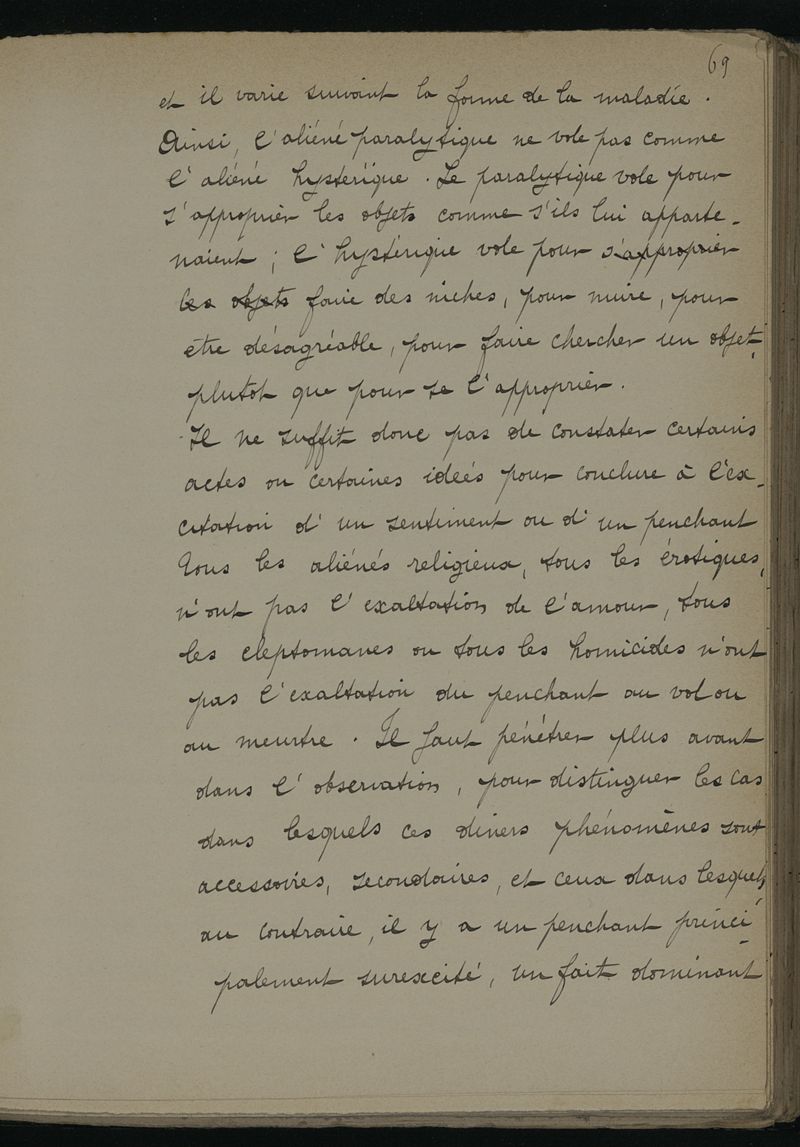 69
et il varie suivant la forme de la maladie.
Ainsi, l'aliéné paralytique ne vole pas comme
l'aliéné hystérique. Le paralytique vole pour
s'approprier les objets comme s'ils lui apparte-
naient ; l'hystérique vole pour s'approprier
les objets faire des niches, pour nuire, pour
etre désagréable, pour faire chercher un objet,
plutot que pour se l'approprier.
Il ne suffit donc pas de constater certains
actes ou certaines ideés pour conclure à l'ex-
citation d'un sentiment ou d'un penchant
Tous les aliénés religieux, tous les érotiques,
n'ont pas l'exaltation de l'amour, tous
les cleptomanes ou tous les homicides n'ont
pas l'exaltation du penchant au vol ou
au meurtre. Il faut pénétrer plus avant
dans l'observation, pour distinguer les cas
dans lesquels ces divers phénomènes sont
accessoires, secondaires, et ceux dans lesquels,
au contraire, il y a un penchant princi-
palement surexcité, un fait dominant